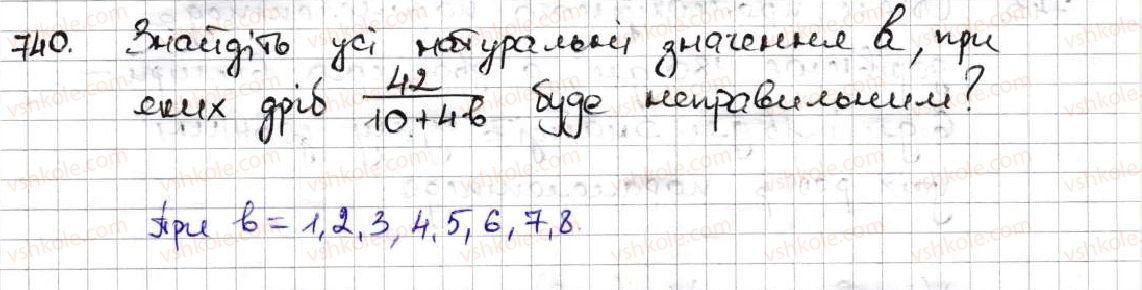 740. Знайдіть усі натуральні значення в, при
яких дріб 42/(10+4в) буде неправильним?
При в = 1, 2, 3, 4, 5, 6, 7, 8.